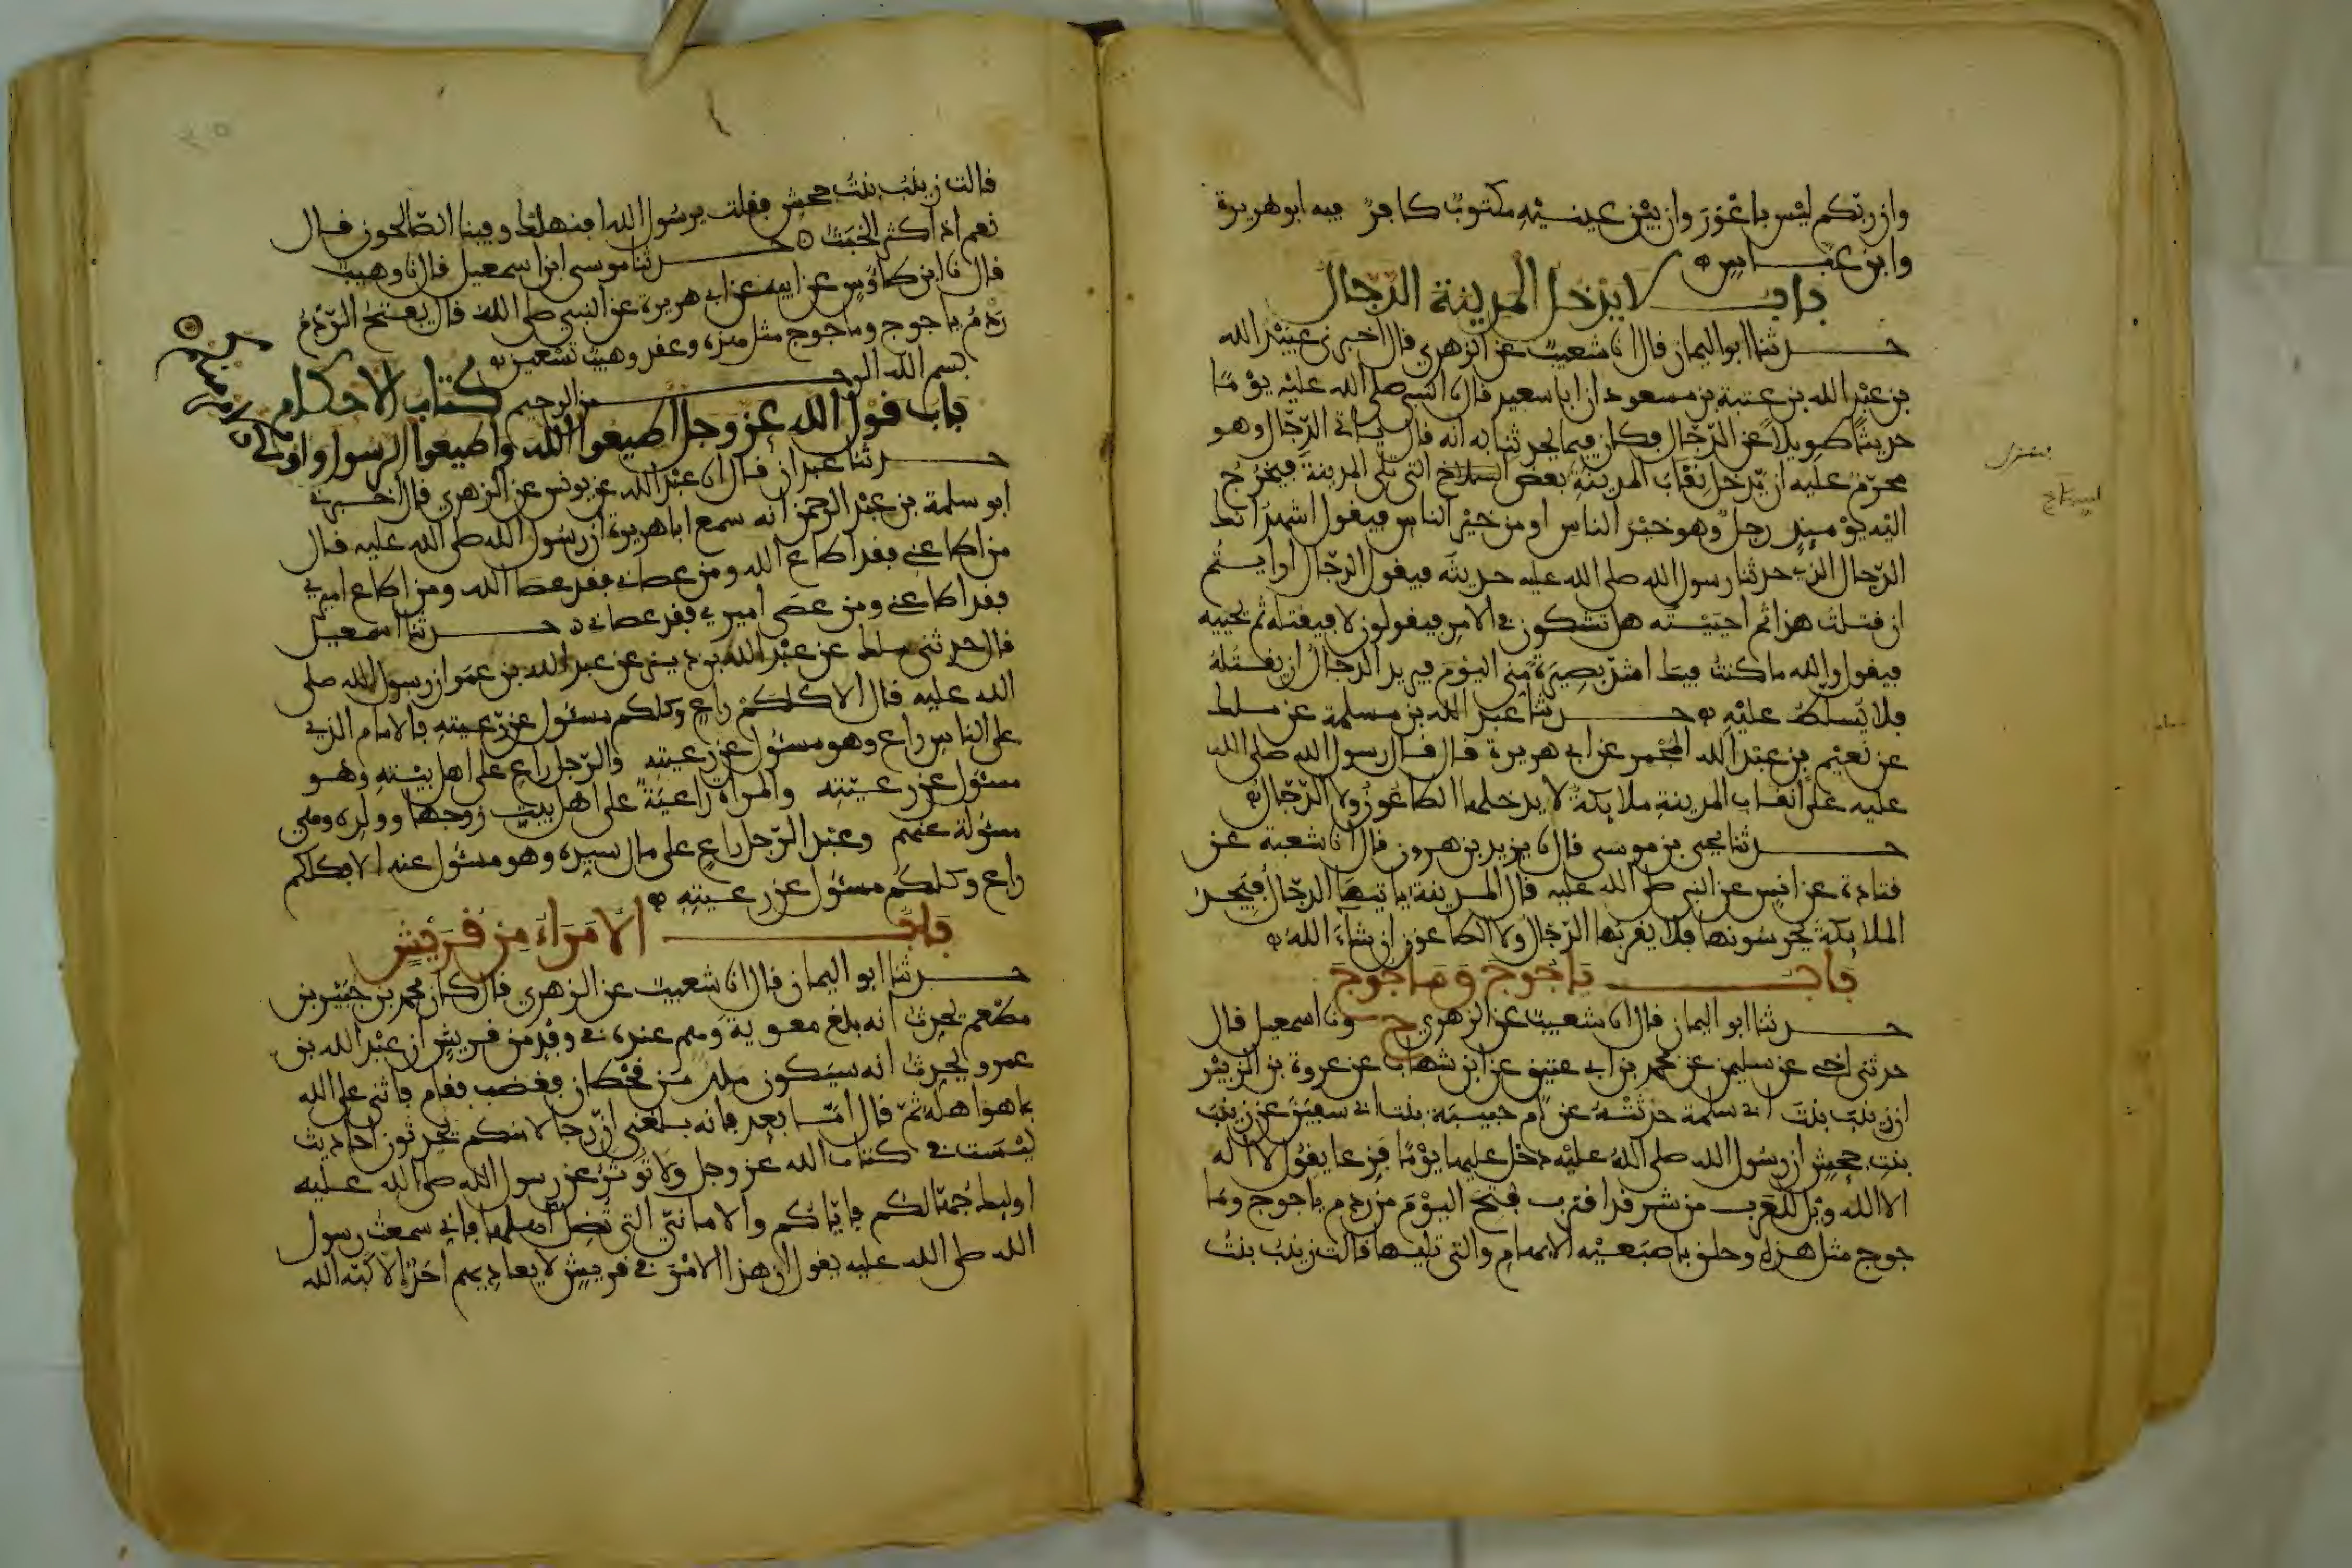 وان ربكم ليس باعور وان بين عينيه مكتوب كافر فيه ابو هريرة
وابن عباس
باب لا يدخل المدينة الدجال
حدثنا ابو اليمان قال انا شعيب عن الزهري قال اخبرني عبيد الله
بن عبد الله بن عتبة بن مسعود ان ابا سعيد قال نا النبي صلى الله عليه يوما
حديثا طويلا عن الدجال فكان فيما يحدثنا به انه قال ياتي الدجال وهو
محرم عليه ان يدخل نقاب المدينة بعض السباخ التي تلي المدينة فيخرج
اليه يومئذ رجل وهو خير الناس او من خير الناس فيقول اشهد انك
الدجال الذي حدثنا رسول الله صلى الله عليه حديثه فيقول الدجال ارايتم
ان قتلت هذا ثم احييته هل تشكون في الامر فيقولون لا فيقتله ثم يحييه
فيقول والله ما كنت فيك اشد بصيرة مني اليوم فيريد الدجال ان يقتله
فلا يسلط عليه حدثنا عبد الله بن مسلمة عن ملك
عن نعيم بن عبد الله المجمر عن ابي هريرة قال قال رسول الله صلى الله
عليه على انقاب المدينة ملائكة لا يدخلها الطاعون ولا الدجال
حدثنا يحيى بن موسى قال نا يزيد بن هرون قال انا شعبة عن
قتادة عن انس عن النبي صلى الله عليه قال المدينة ياتيها الدجال فيجد
الملائكة يحرسونها فلا يقربها الدجال ولا الطاعون ان شاء الله
باب ياجوج وماجوج
حدثنا ابو اليمان قال انا شعيب عن الزهري ح ونا اسمعيل قال
حدثني اخي عن سليمن عن محمد بن ابي عتيق عن ابن شهاب عن عروة بن الزبير
ان زينب بنت ابي سلمة حدثته عن ام حبيبة بنت ابي سفين عن زينب
بنت جحش ان رسول الله صلى الله عليه دخل عليها يوما فزعا يقول لا اله
الا الله ويل للعرب من شر قد اقترب فتح اليوم من ردم ياجوج وما
جوج مثل هذه وحلق باصبعيه الابهام والتي تليها قالت زينب بنت
قالت زينب بنت جحش فقلت يرسول الله افنهلك وفينا الصالحون قال
نعم اذا كثر الخبث حدثنا موسى ابن اسمعيل قال نا وهيب
قال نا ابن طاوس عن ابيه عن ابي هريرة عن النبي صلى الله قال يفتح الردم
ردم ياجوج وماجوج مثل هذه وعقد وهيب تسعين
بسم الله الرحمن الرحيم كتاب الاحكام
باب قول الله عز وجل اطيعوا الله واطيعوا الرسول واولي الامر منكم
حدثنا عبدان قال انا عبد الله عن يونس عن الزهري قال اخبرني
ابو سلمة بن عبد الرحمن انه سمع ابا هريرة ان رسول الله صلى الله عليه قال
من اطاعني فقد اطاع الله ومن عصاني فقد عصا الله ومن اطاع اميري
فقد اطاعني ومن عصى اميري فقد عصاني حدثنا اسمعيل
قال حدثني ملك عن عبد الله بن دينر عن عبد الله بن عمر ان رسول الله صلى
الله عليه قال الا كلكم راع وكلكم مسئول عن رعيته فالامام الذي
على الناس راع وهو مسئول عن رعيته والرجل راع على اهل بيته وهو
مسئول عن رعيته والمراة راعية على اهل بيت زوجها وولده وهي
مسئولة عنهم وعبد الرجل راع على مال سيده وهو مسئول عنه الا فكلكم
راع وكلكم مسئول عن رعيته
باب الامراء من قريش
حدثنا ابو اليمان قال انا شعيب عن الزهري قال كان محمد بن جبير بن
مطعم يحدث انه بلغ معوية وهم عنده في وفد من قريش ان عبد الله بن
عمرو يحدث انه سيكون ملك من قحطان فغضب فقام فاثنى على الله
بما هو اهله ثم قال اما بعد فانه بلغني ان رجالا منكم يحدثون احاديث
ليست في كتاب الله عز وجل ولا توثر عن رسول الله صلى الله عليه
اوليك جهالكم فاياكم والاماني التي تضل اهلها فاني سمعت رسول
الله صلى الله عليه يقول ان هذا الامر في قريش لا يعاديهم احد الا كبه الله